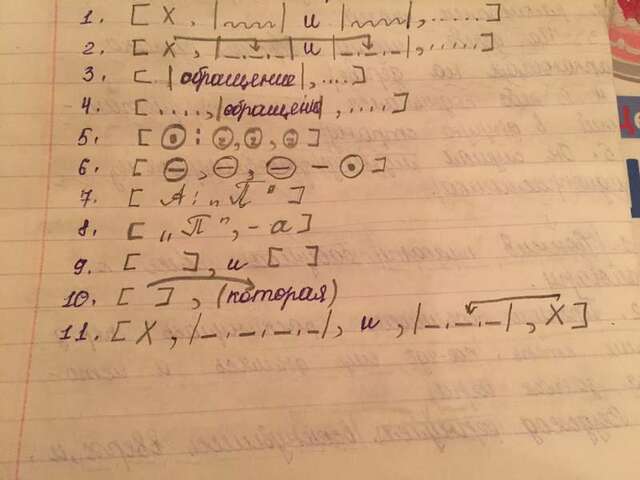 1. [ X, |﹏﹏| и |﹏﹏|, .....]
2. [ X, |_._._| и |_._._|, .....]
3. [. |обращение|, ....]
4. [...., |обращение|, ....]
5. [ ⊙ : ○, ○, ○ ]
6. [ ⊖, ⊖, ⊖ – ⊙ ]
7. [ А: „П" ]
8. [ „П", - а]
9. [ ], и [ ]
10. [ ], (которая)
11. [ X, |_._._._|, и, |_._._|, X ]